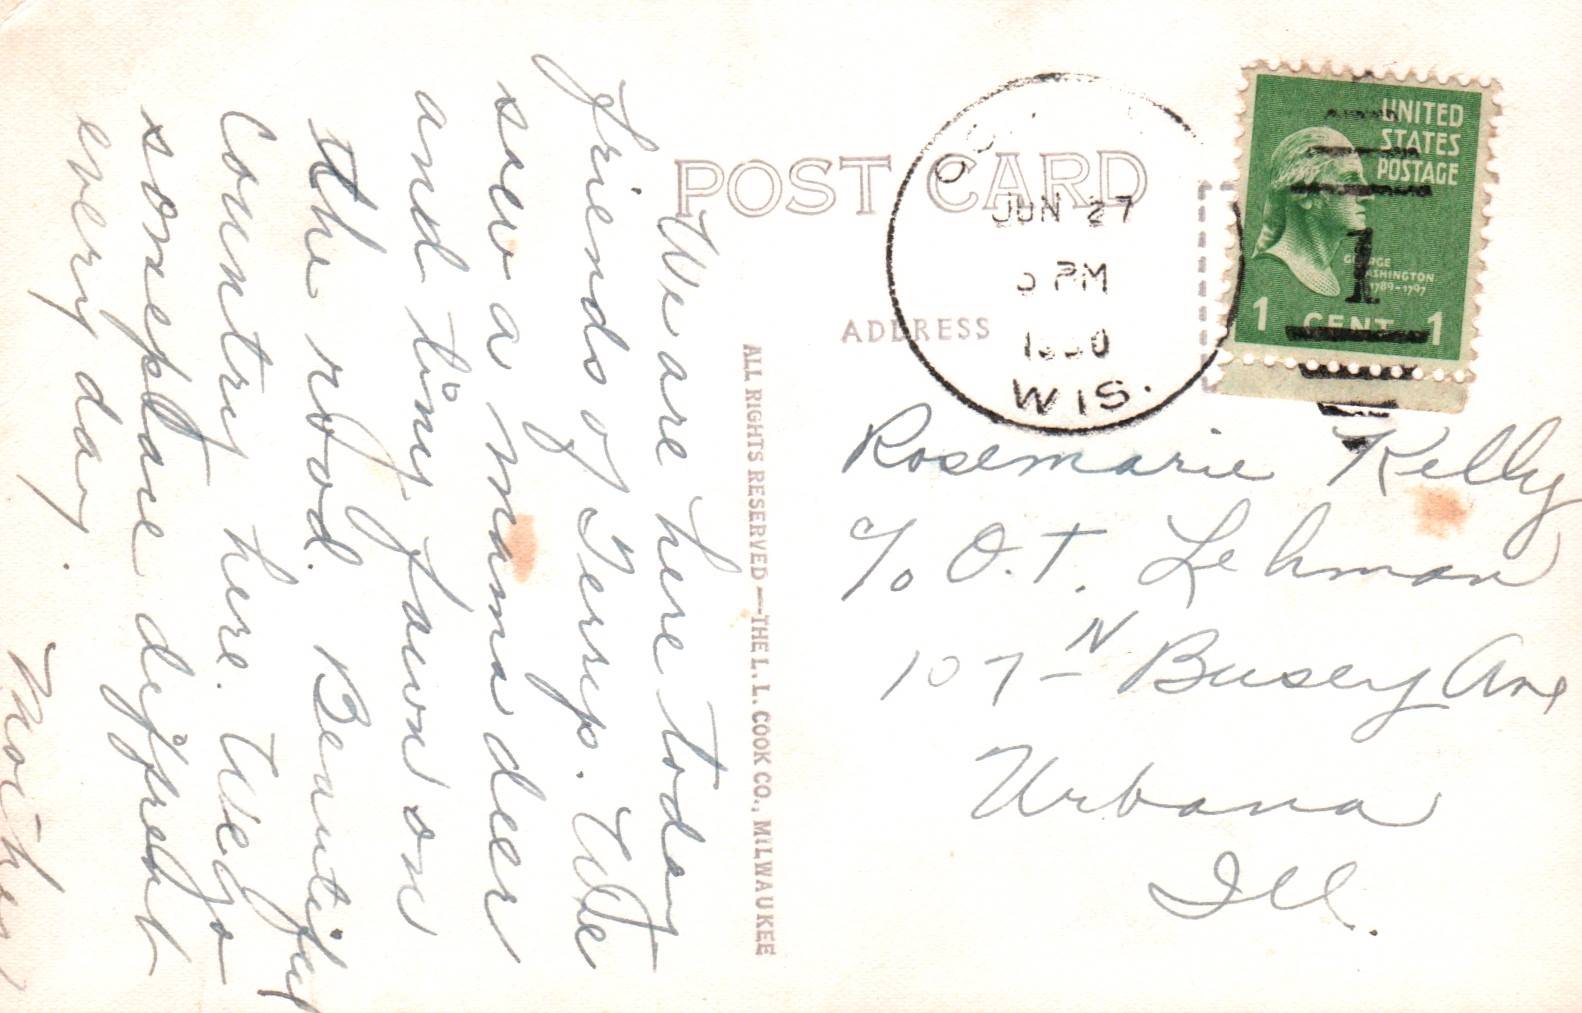 POST CARD
ADDRESS
JUN 27
PM
WIS.
UNITED
STATES
POSTAGE
GEORGE
WASHINGTON
1789-1797
1 CENT 1
1
Rosemarie Kelly
c/o O.T. Lehman
107 N Busey Ave
Urbana
Ill.
ALL RIGHTS RESERVED—THE L. L. COOK CO., MILWAUKEE
We are here today
friends of . We
saw a mama deer
and tiny fawn on
the road. Beautiful
Country here. We go
someplace different
every day.
Mother